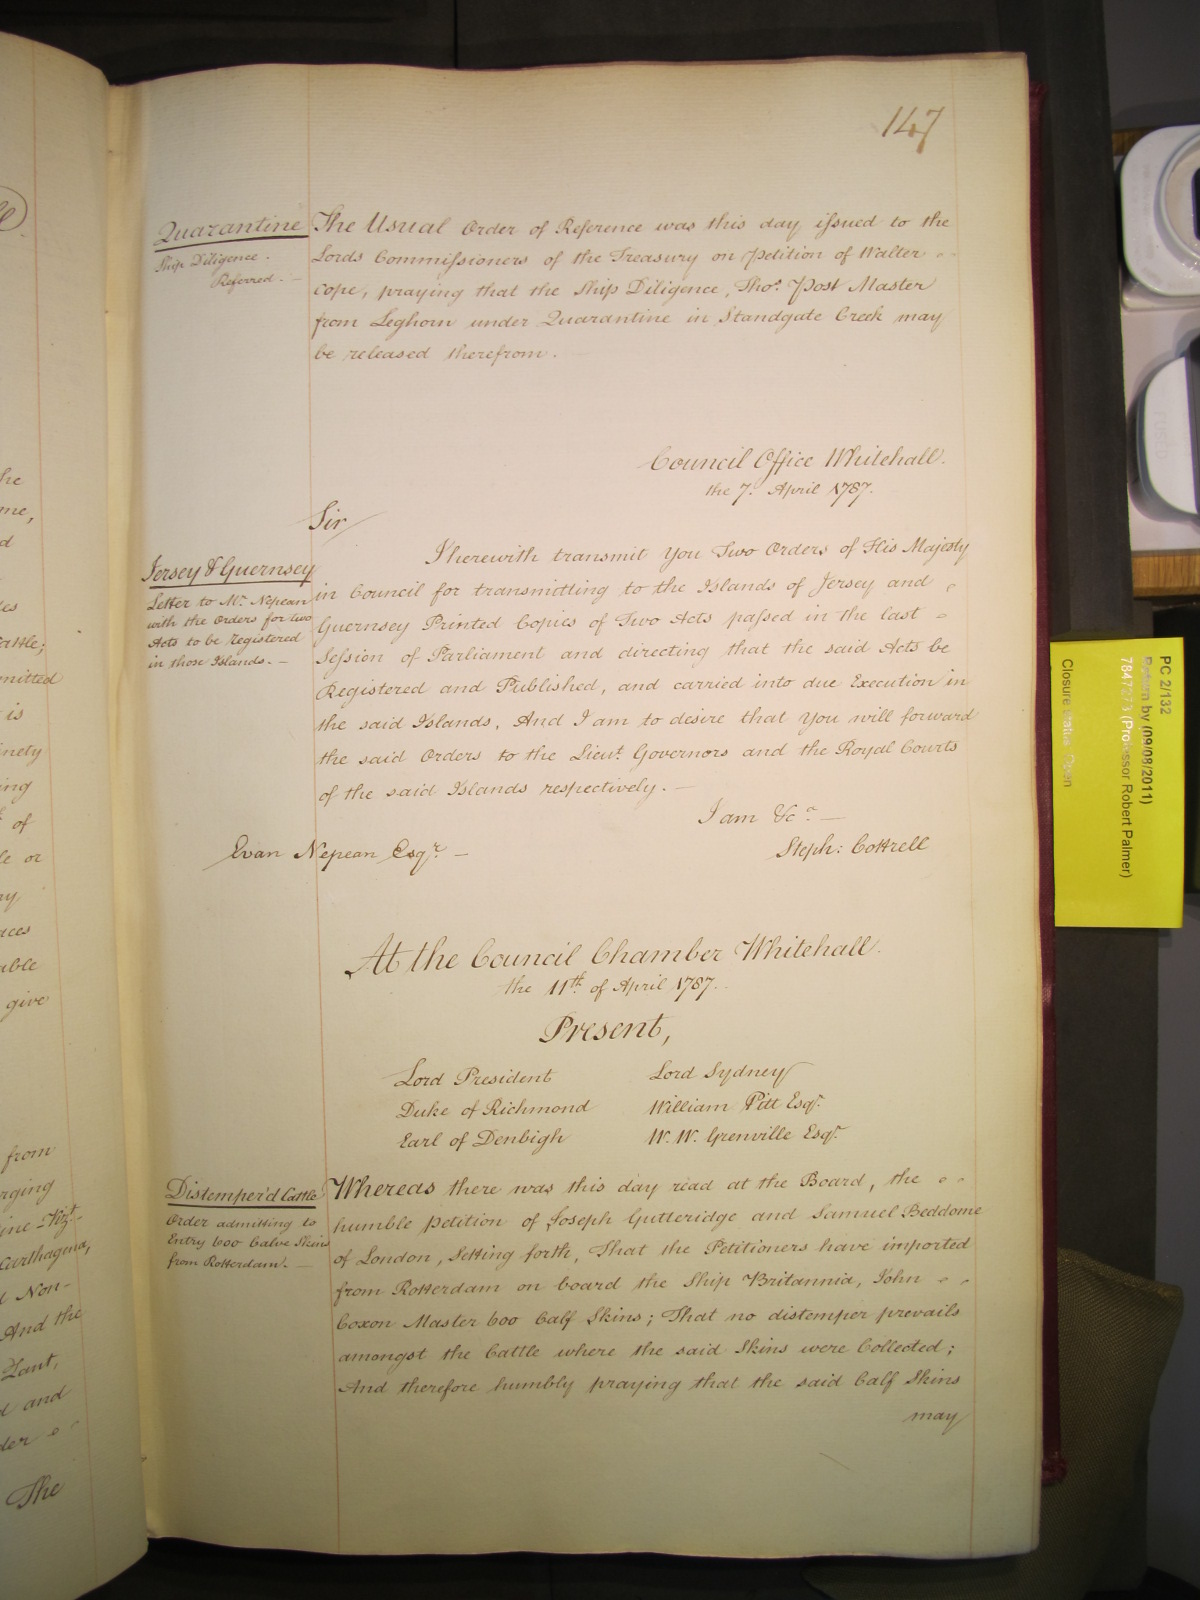 147
Quarantine
Ship Diligence.
Referred. —
The Usual Order of Reference was this day issued to the
Lords Commissioners of the Treasury on Petition of Walter
Cope, praying that the Ship Diligence, Thos. Post Master
from Leghorn under Quarantine in Standgate Creek may
be released therefrom.
Council Office Whitehall.
the 7th April 1787.
Sir
Jersey & Guernsey
Letter to Mr. Nepean
with the Orders for two
Acts to be registered
in those Islands. —
I herewith transmit You Two Orders of His Majesty
in Council for transmitting to the Islands of Jersey and
Guernsey Printed Copies of Two Acts passed in the last
Session of Parliament and directing that the said Acts be
Registered and Published, and carried into due Execution in
the said Islands, And I am to desire that You will forward
the said Orders to the Lieut. Governors and the Royal Courts
of the said Islands respectively. —
I am &c. —
Steph: Cottrell
Evan Nepean Esqr. —
At the Council Chamber Whitehall.
the 11th of April 1787.
Present,
Lord President
Lord Sydney
Duke of Richmond
William Pitt Esqr.
Earl of Denbigh
W. W. Grenville Esqr.
Distemper'd Cattle
Order admitting to
Entry 600 Calve Skins
from Rotterdam. —
Whereas there was this day read at the Board, the
humble petition of Joseph Gutteridge and Samuel Beddome
of London, Setting forth, That the Petitioners have imported
from Rotterdam on board the Ship Britannia, John
Coxon Master 600 Calf Skins; That no distemper prevails
amongst the Cattle where the said Skins were Collected;
And therefore humbly praying that the said Calf Skins
may
he
me,
d
attle;
mitted
is
inety
ing
of
le or
ry
aces
able
give
from
rging
Carthagena,
d Non-
And the
Zant,
d and
der
The
PC 2/132
Return by (09/08/2011)
7847273 (Professor Robert Palmer)
Closure status Open